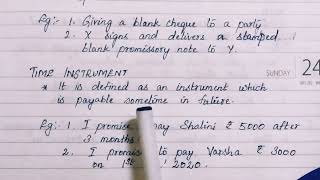 Eg:- 1. Giving a blank cheque to a party
2. X signs and delivers a stamped
blank promissory note to Y.
TIME INSTRUMENT
SUNDAY 24
* It is defined as an instrument which
is payable sometime in future.
Eg: 1. I promise pay Shalini ₹ 5000 after
3 months
2. I promise to pay Varsha ₹ 3000
on 1st 2020.